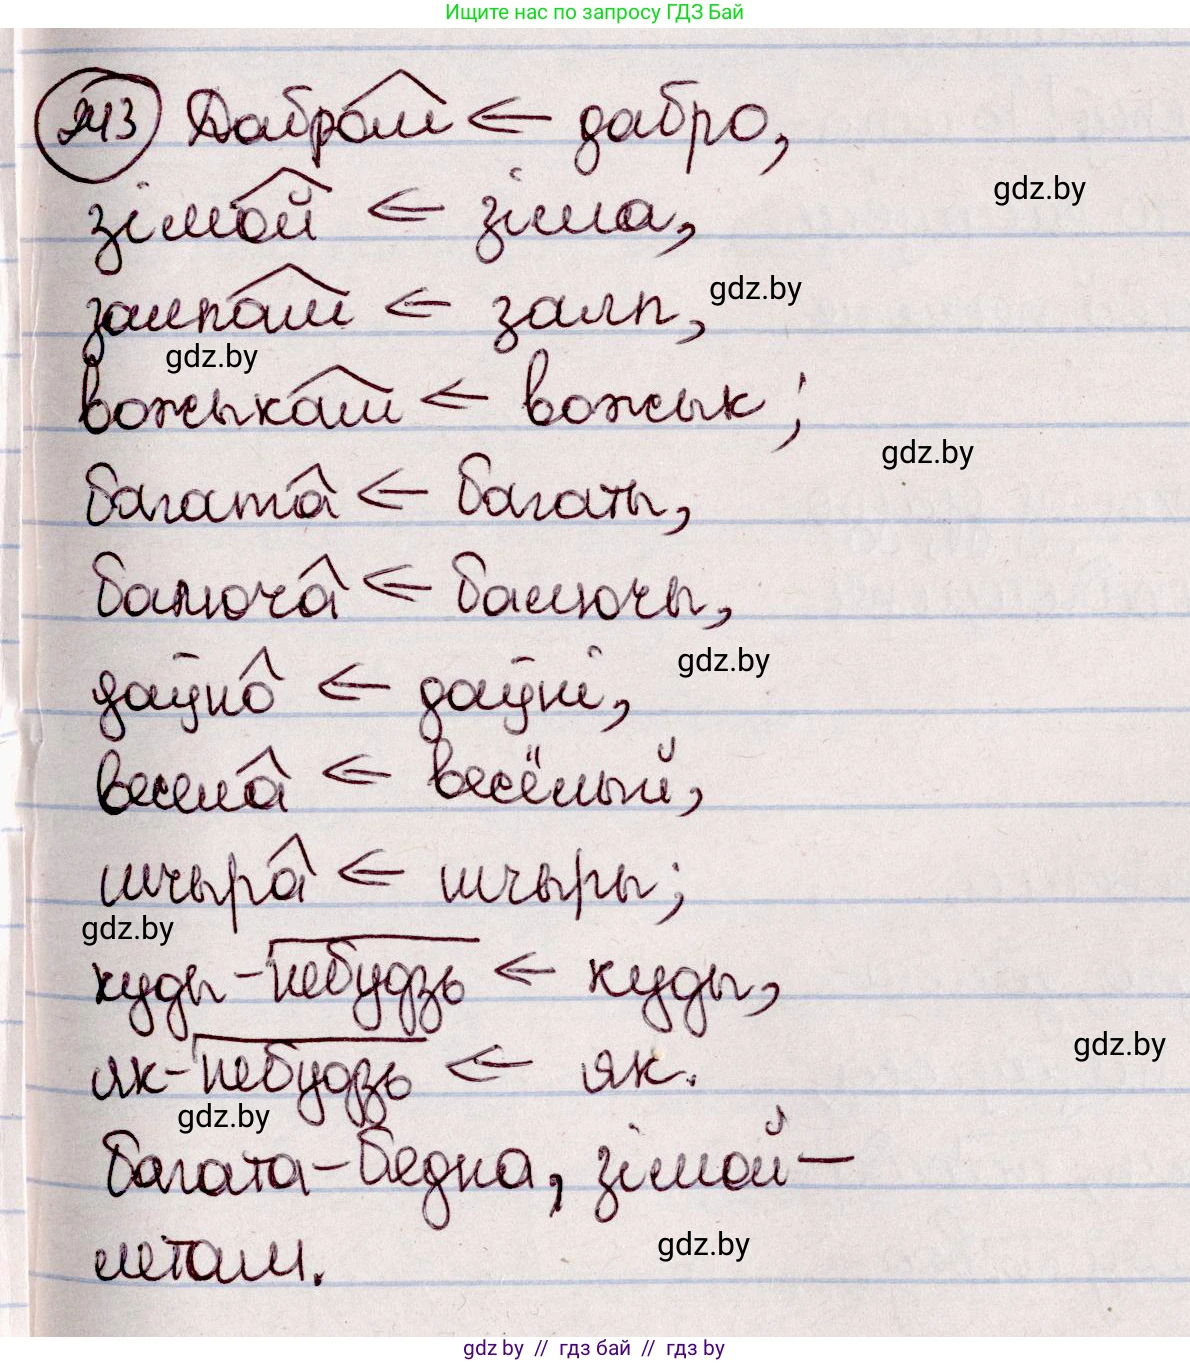 Ищите нас по запросу ГДЗ Бай
243 Дабром ← дабро,
gdz.by
зімой ← зіма,
залпам ← залп,
gdz.by
gdz.by
вожыкам ← вожык;
gdz.by
багата ← багаты,
балюча ← балючы,
gdz.by
даўно ← даўні,
весела ← весёлый,
шчыра ← шчыры;
gdz.by
куды-небудзь ← куды,
gdz.by
як-небудзь ← як.
gdz.by
Багата – бедна, зімой –
летам.
gdz.by
gdz by // гдз бай // гдз by